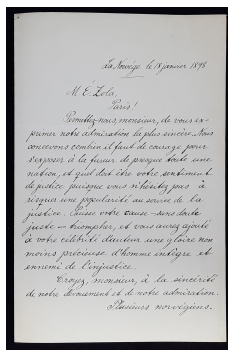 La Norvège le 18 janvier 1898
M. É. Zola,
Paris!
Permettez-nous, monsieur, de vous ex-
primer notre admiration le plus sincère. Nous
concevons combien il faut de courage pour
s'exposer à la fureur de presque toute une
nation, et quel doit être votre sentiment
de justice puisque vous n'hésitez pas à
risquer une popularité au service de la
justice. Puisse votre cause – sans doute
juste – triompher, et vous aurez ajouté
à votre célébrité d'auteur une gloire non
moins précieuse d'homme intègre et
ennemi de l'injustice.
Croyez, monsieur, à la sincérité
de notre dévouement et de notre admiration.
Plusieurs norvégiens.